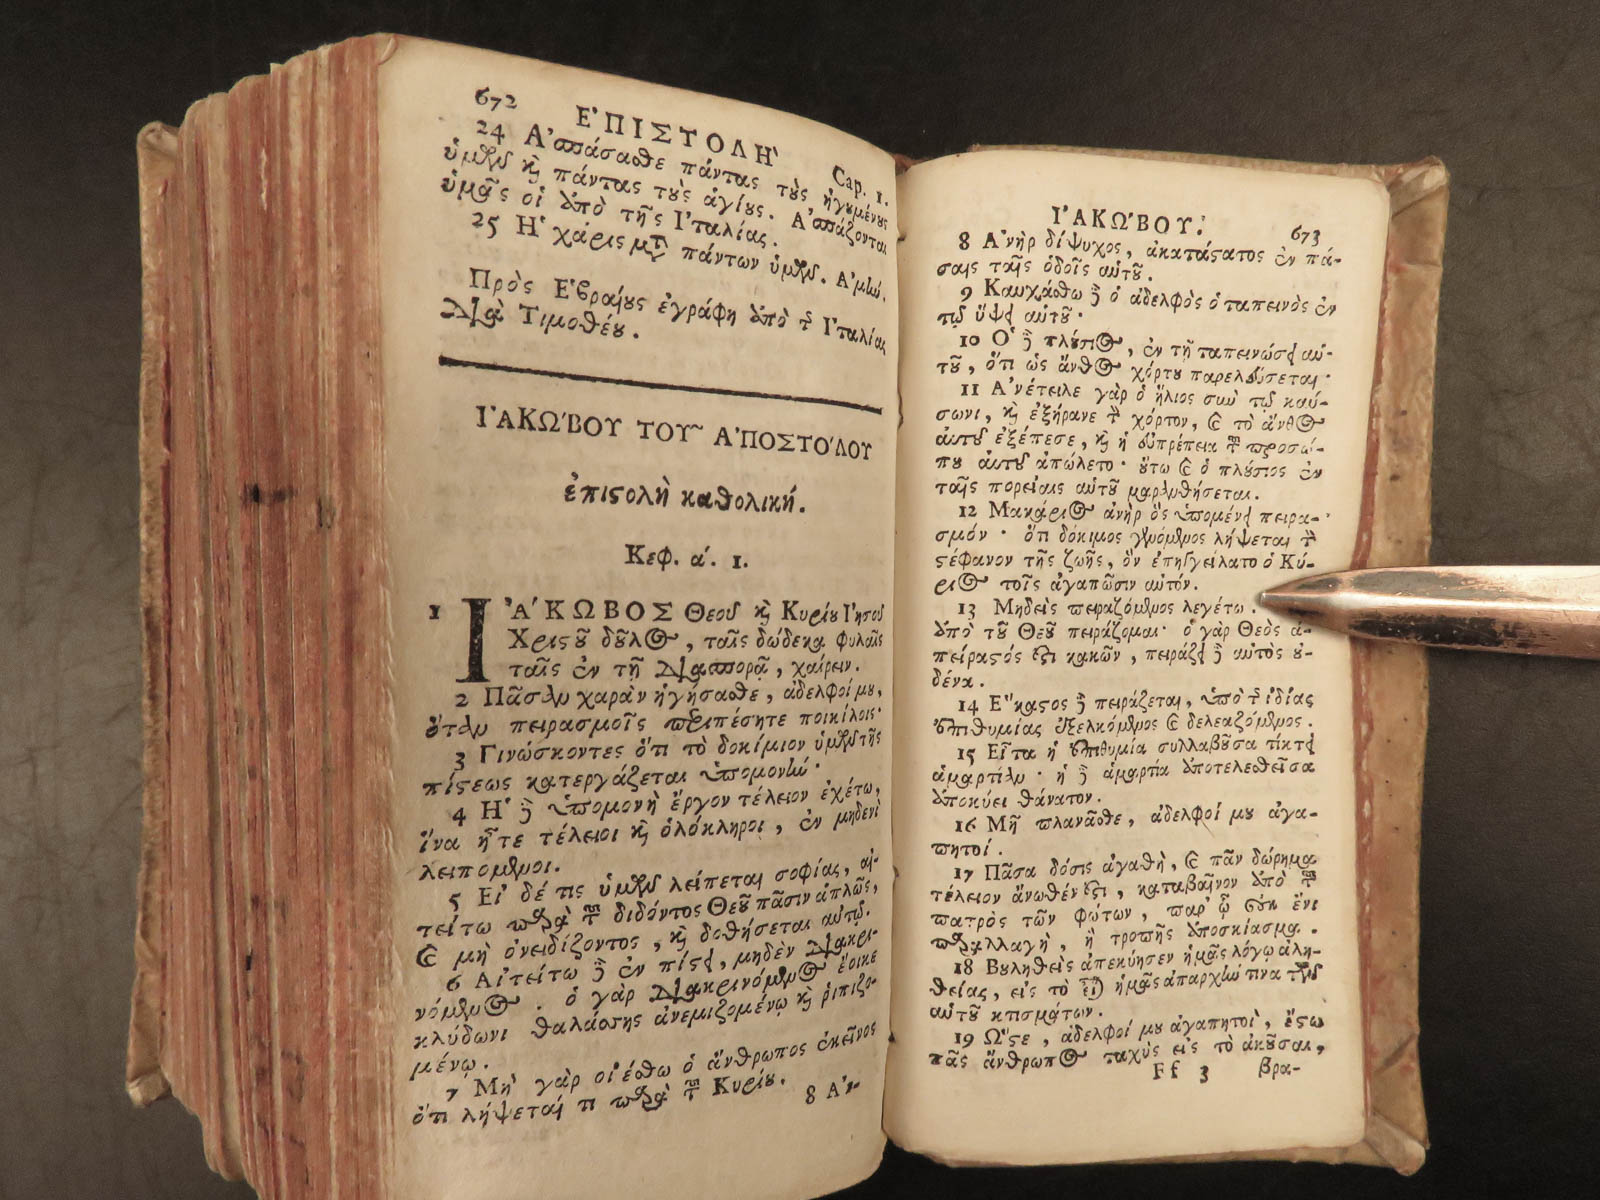 672 ἘΠΙΣΤΟΛῊ Cap. 1.
24 Ἀσπάσασθε πάντας τοὺς ἡγουμένους
ὑμῶν καὶ πάντας τοὺς ἁγίους. Ἀσπάζονται
ὑμᾶς οἱ ἀπὸ τῆς Ἰταλίας.
25 Ἡ χάρις μετὰ πάντων ὑμῶν. Ἀμήν.
Πρὸς Ἑβραίους ἐγράφη ἀπὸ τῆς Ἰταλίας
διὰ Τιμοθέου.
ἸΑΚΏΒΟΥ ΤΟΥ͂ ἈΠΟΣΤΌΛΟΥ
ἐπιστολὴ καθολική.
Κεφ. α΄. 1.
1 ἸΆΚΩΒΟΣ Θεοῦ καὶ Κυρίου Ἰησοῦ
Χριστοῦ δοῦλος, ταῖς δώδεκα φυλαῖς
ταῖς ἐν τῇ διασπορᾷ, χαίρειν.
2 Πᾶσαν χαρὰν ἡγήσασθε, ἀδελφοί μου,
ὅταν πειρασμοῖς περιπέσητε ποικίλοις·
3 Γινώσκοντες ὅτι τὸ δοκίμιον ὑμῶν τῆς
πίστεως κατεργάζεται ὑπομονήν·
4 Ἡ δὲ ὑπομονὴ ἔργον τέλειον ἐχέτω,
ἵνα ἦτε τέλειοι καὶ ὁλόκληροι, ἐν μηδενὶ
λειπόμενοι.
5 Εἰ δέ τις ὑμῶν λείπεται σοφίας, αἰ-
τείτω παρὰ τοῦ διδόντος Θεοῦ πᾶσιν ἁπλῶς,
καὶ μὴ ὀνειδίζοντος, καὶ δοθήσεται αὐτῷ.
6 Αἰτείτω δὲ ἐν πίστει, μηδὲν διακρι-
νόμενος. ὁ γὰρ διακρινόμενος ἔοικε
κλύδωνι θαλάσσης ἀνεμιζομένῳ καὶ ῥιπιζο-
μένῳ.
7 Μὴ γὰρ οἰέσθω ὁ ἄνθρωπος ἐκεῖνος
ὅτι λήψεταί τι παρὰ τοῦ Κυρίου.
8 Ἀν-
ἸΑΚΏΒΟΥ. 673
8 Ἀνὴρ δίψυχος, ἀκατάστατος ἐν πά-
σαις ταῖς ὁδοῖς αὐτοῦ.
9 Καυχάσθω δὲ ὁ ἀδελφὸς ὁ ταπεινὸς ἐν
τῷ ὕψει αὐτοῦ·
10 Ὁ δὲ πλούσιος, ἐν τῇ ταπεινώσει αὐ-
τοῦ, ὅτι ὡς ἄνθος χόρτου παρελεύσεται·
11 Ἀνέτειλε γὰρ ὁ ἥλιος σὺν τῷ καύ-
σωνι, καὶ ἐξήρανε τὸν χόρτον, καὶ τὸ ἄνθος
αὐτοῦ ἐξέπεσε, καὶ ἡ εὐπρέπεια τοῦ προσώ-
που αὐτοῦ ἀπώλετο· οὕτω καὶ ὁ πλούσιος ἐν
ταῖς πορείαις αὐτοῦ μαρανθήσεται.
12 Μακάριος ἀνὴρ ὃς ὑπομένει πειρα-
σμόν· ὅτι δόκιμος γενόμενος λήψεται τὸν
στέφανον τῆς ζωῆς, ὃν ἐπηγγείλατο ὁ Κύ-
ριος τοῖς ἀγαπῶσιν αὐτόν.
13 Μηδεὶς πειραζόμενος λεγέτω.
ἀπὸ τοῦ Θεοῦ πειράζομαι· ὁ γὰρ Θεὸς ἀ-
πείραστός ἐστι κακῶν, πειράζει δὲ αὐτὸς οὐ-
δένα.
14 Ἕκαστος δὲ πειράζεται, ὑπὸ τῆς ἰδίας
ἐπιθυμίας ἐξελκόμενος καὶ δελεαζόμενος.
15 Εἶτα ἡ ἐπιθυμία συλλαβοῦσα τίκτει
ἁμαρτίαν· ἡ δὲ ἁμαρτία ἀποτελεσθεῖσα
ἀποκύει θάνατον.
16 Μὴ πλανᾶσθε, ἀδελφοί μου ἀγα-
πητοί.
17 Πᾶσα δόσις ἀγαθὴ, καὶ πᾶν δώρημα
τέλειον ἄνωθέν ἐστι, καταβαῖνον ἀπὸ τοῦ
πατρὸς τῶν φώτων, παρ' ᾧ οὐκ ἔνι
παραλλαγὴ, ἢ τροπῆς ἀποσκίασμα.
18 Βουληθεὶς ἀπεκύησεν ἡμᾶς λόγῳ ἀλη-
θείας, εἰς τὸ εἶναι ἡμᾶς ἀπαρχήν τινα τῶν
αὐτοῦ κτισμάτων.
19 Ὥστε, ἀδελφοί μου ἀγαπητοὶ, ἔστω
πᾶς ἄνθρωπος ταχὺς εἰς τὸ ἀκοῦσαι,
Ff 3 βρα-